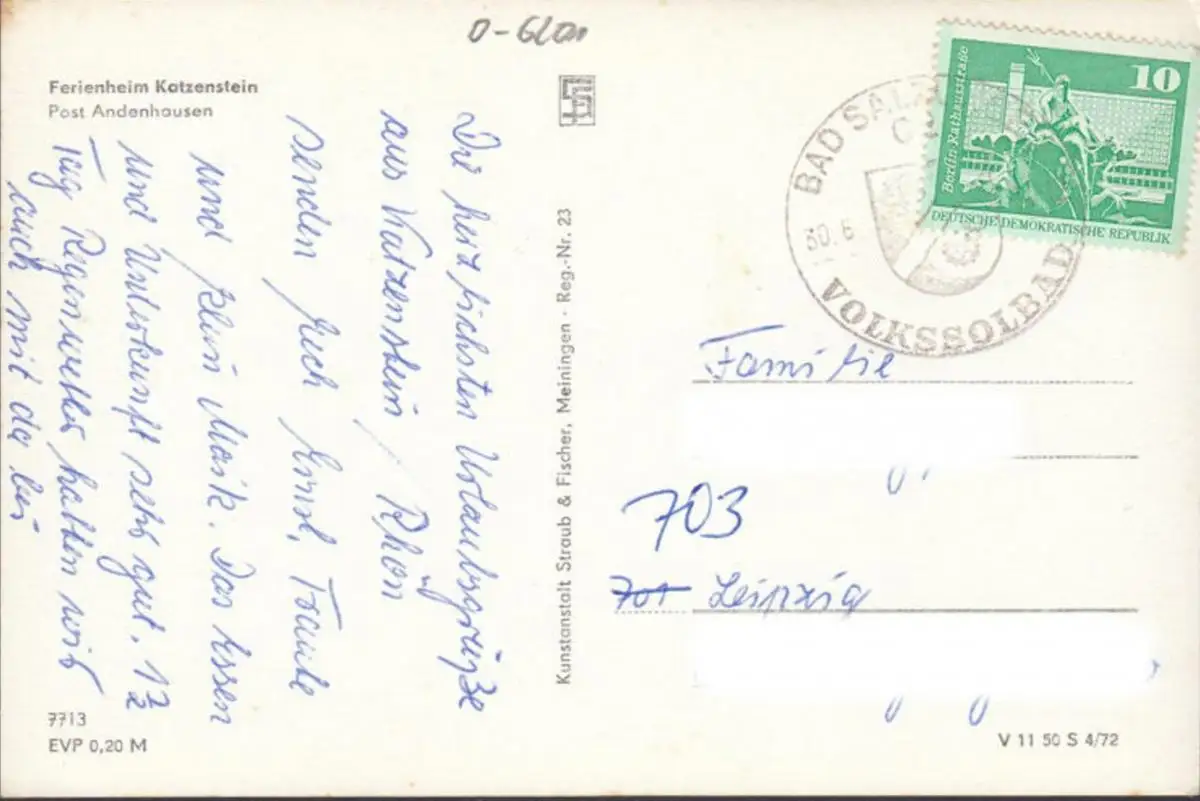 Ferienheim Katzenstein
Post Andenhausen
Die herzlichsten Urlaubsgrüße
aus Katzenstein / Rhön
senden Euch Ernst, Traute
und klein Maik. Das Essen
und Unterkunft sehr gut. 1½
Tag Regenwetter hatten wir
auch mit da bei
7713
EVP 0,20 M
Kunstanstalt Straub & Fischer, Meiningen · Reg.-Nr. 23
10
Berlin-Rathausstraße
DEUTSCHE DEMOKRATISCHE REPUBLIK
BAD
30. 6
VOLKSSOLBAD
Familie
703
701 Leipzig
V 11 50 S 4/72